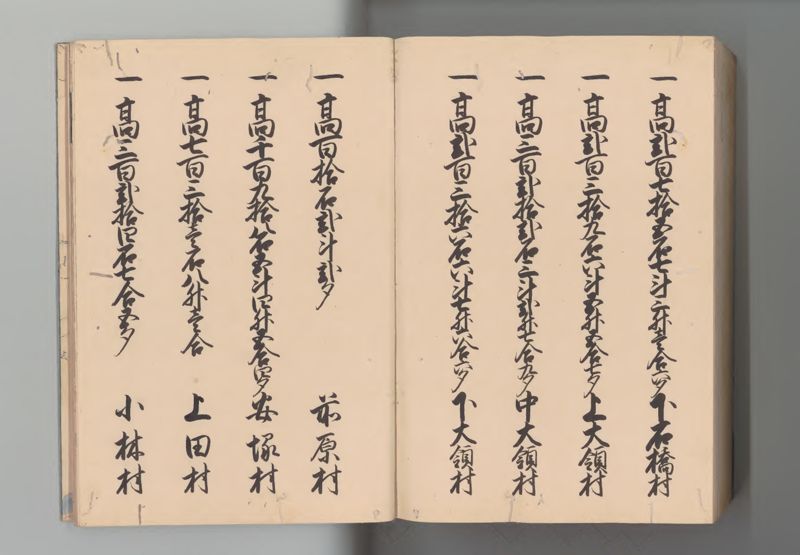 一高弐百七拾五石七斗三升壱合六夕下石橋村
一高弐百三拾九石六斗五升五合七夕上大領村
一高三百弐拾弐石三斗弐升七合九夕中大領村
一高弐百三拾六石六斗七升六合四夕下大領村
一高百拾石弐斗弐夕 前原村
一高千百九拾八石五斗四升五合四夕安塚村
一高七百三拾壱石八升壱合 上田村
一高三百弐拾四石七合五夕 小林村